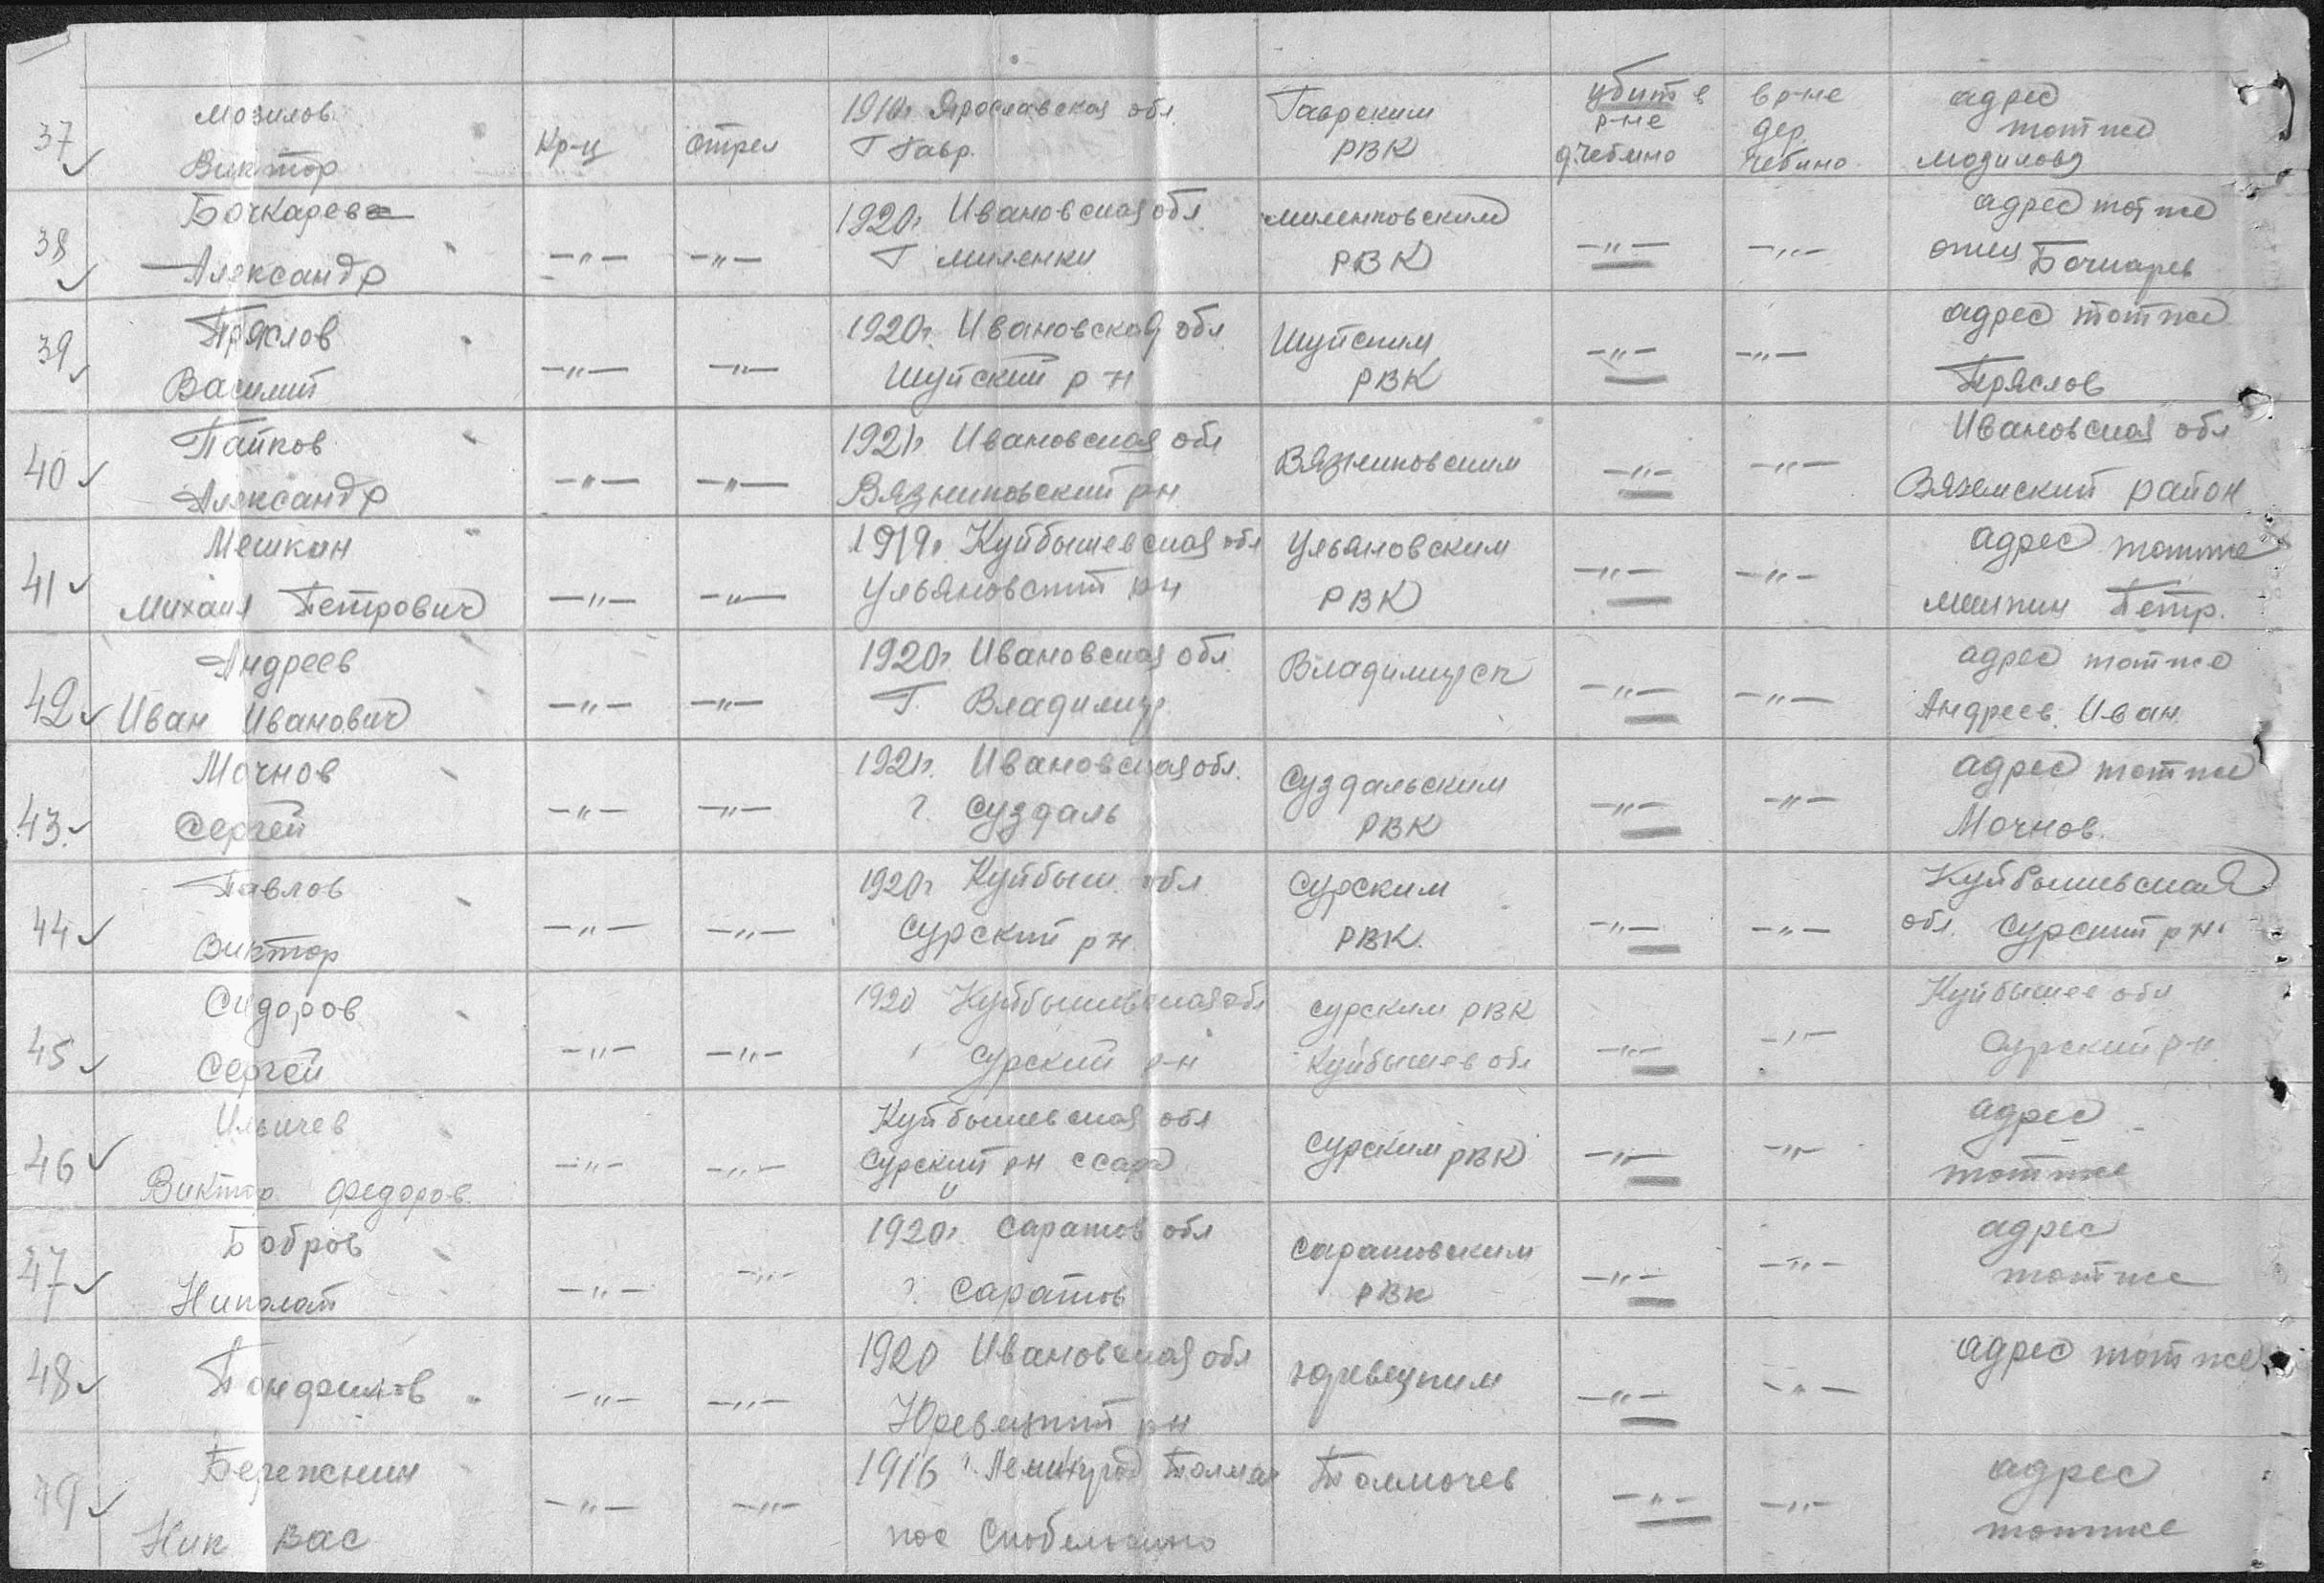 37 Мозилов Виктор Кр-ц Стрел 1910г. Ярославская обл. Г Гавр. Гаврским РВК убит в р-не д. Чебино в р-не дер. Чебино адрес тот же Мозилова
38 Бочкарев Александр —〃— —〃— 1920г. Ивановская обл Г Миленки Миленковским РВК —〃— —〃— адрес тот же отец Бочкарев
39 Пряслов Василий —〃— —〃— 1920г. Ивановская обл. Шуйский р н Шуйским РВК —〃— —〃— адрес тот же Пряслов
40 Пайков Александр —〃— —〃— 1921г. Ивановская обл Вязниковский рн Вязниковским —〃— —〃— Ивановская обл Вяземский район
41 Мешкин Михаил Петрович —〃— —〃— 1919г. Куйбышевская обл Ульяновский рн Ульяновским РВК —〃— —〃— адрес тот же Мешкин Петр.
42 Андреев Иван Иванович —〃— —〃— 1920г. Ивановская обл. Г. Владимир Владимирск —〃— —〃— адрес тот же Андреев. Иван.
43. Мочнов Сергей —〃— —〃— 1921г. Ивановская обл. г. Суздаль Суздальским РВК —〃— —〃— адрес тот же Мочнов.
44 Павлов Виктор —〃— —〃— 1920г Куйбыш. обл Сурский р н. Сурским РВК. —〃— —〃— Куйбышевская обл. Сурский р н.
45 Сидоров Сергей —〃— —〃— 1920 Куйбышевская обл Сурский р-н Сурским РВК Куйбышев обл —〃— —〃— Куйбышев обл Сурский р-н.
46 Ильичев Виктор Федоров. —〃— —〃— Куйбышевская обл Сурский рн Сурским РВК —〃— —〃— адрес тот же
47 Бобров Николай —〃— —〃— 1920г. Саратов обл г. Саратов Саратовским РВК —〃— —〃— адрес тот же
48 —〃— —〃— 1920 Ивановская обл Юревецкий рн Юревецким —〃— —〃— адрес тот же
49 Бережнин Ник Вас —〃— —〃— 1916 г. пос Толмочев —〃— —〃— адрес тот же